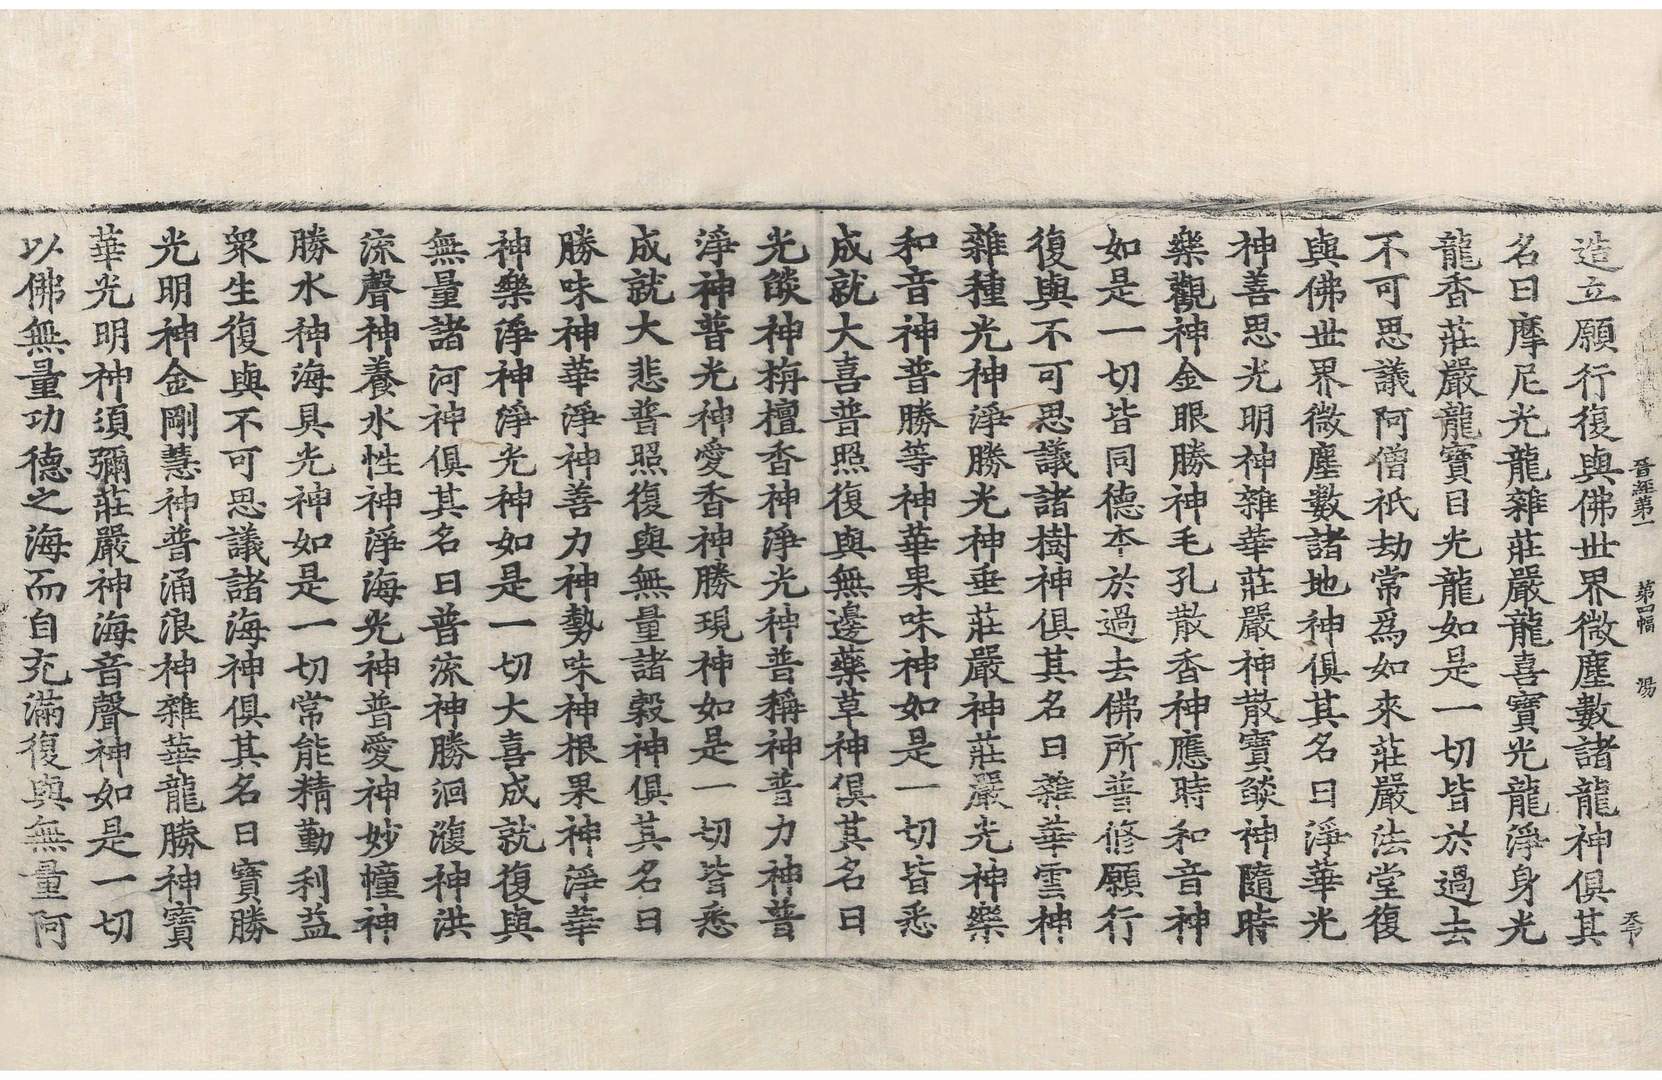 晉經第一 第四幅 湯
造立願行復與佛世界微塵數諸龍神俱其
名曰摩尼光龍雜莊嚴龍喜寶光龍淨身光
龍香莊嚴龍寶目光龍如是一切皆於過去
不可思議阿僧祇劫常爲如來莊嚴法堂復
與佛世界微塵數諸地神俱其名曰淨華光
神善思光明神雜華莊嚴神散寶燄神隨時
樂觀神金眼勝神毛孔散香神應時和音神
如是一切皆同德本於過去佛所普修願行
復與不可思議諸樹神俱其名曰雜華雲神
雜種光神淨勝光神垂莊嚴神莊嚴光神樂
和音神普勝等神華果味神如是一切皆悉
成就大喜普照復與無邊藥草神俱其名曰
光燄神栴檀香神淨光神普稱神普力神普
淨神普光神愛香神勝現神如是一切皆悉
成就大悲普照復與無量諸穀神俱其名曰
勝味神華淨神善力神勢味神根果神淨華
神樂淨神淨光神如是一切大喜成就復與
無量諸河神俱其名曰普流神勝洄澓神洪
流聲神養水性神淨海光神普愛神妙幢神
勝水神海具光神如是一切常能精勤利益
衆生復與不可思議諸海神俱其名曰寶勝
光明神金剛慧神普涌浪神雜華龍勝神寶
華光明神須彌莊嚴神海音聲神如是一切
以佛無量功德之海而自充滿復與無量阿